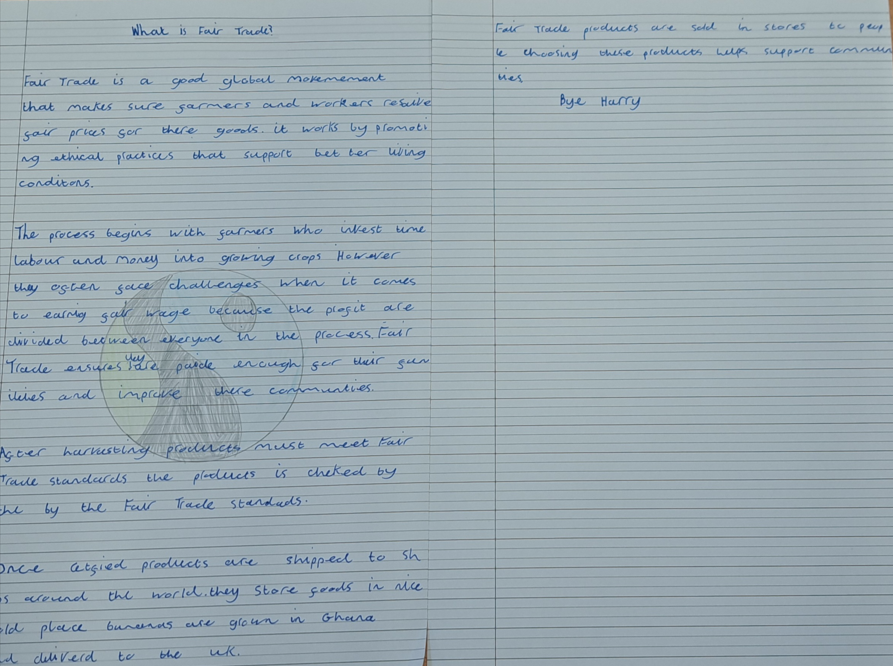 What is Fair Trade?
Fair Trade is a good global movemement
that makes sure farmers and workers reseive
fair prices for there goods. it works by promoti
ng ethical practices that support bet ter living
conditons.
The process begins with farmers who invest time
labour and money into growing crops However
they often face challenges when it comes
to earing fair wage because the profit are
divided between everyone in the process. Fair
Trade ensures they are paide enough for their fam
ilies and improve there communties.
After harvesting products must meet Fair
Trade standards the products is cheked by
the by the Fair Trade standads.
Once cetfied products are shipped to sh
ps around the world. they store goods in nice
old place bananas are grown in Ghana
nd diliverd to the UK.
Fair Trade products are sold in stores to peop
le choosing these products helps support commun
ities
Bye Harry